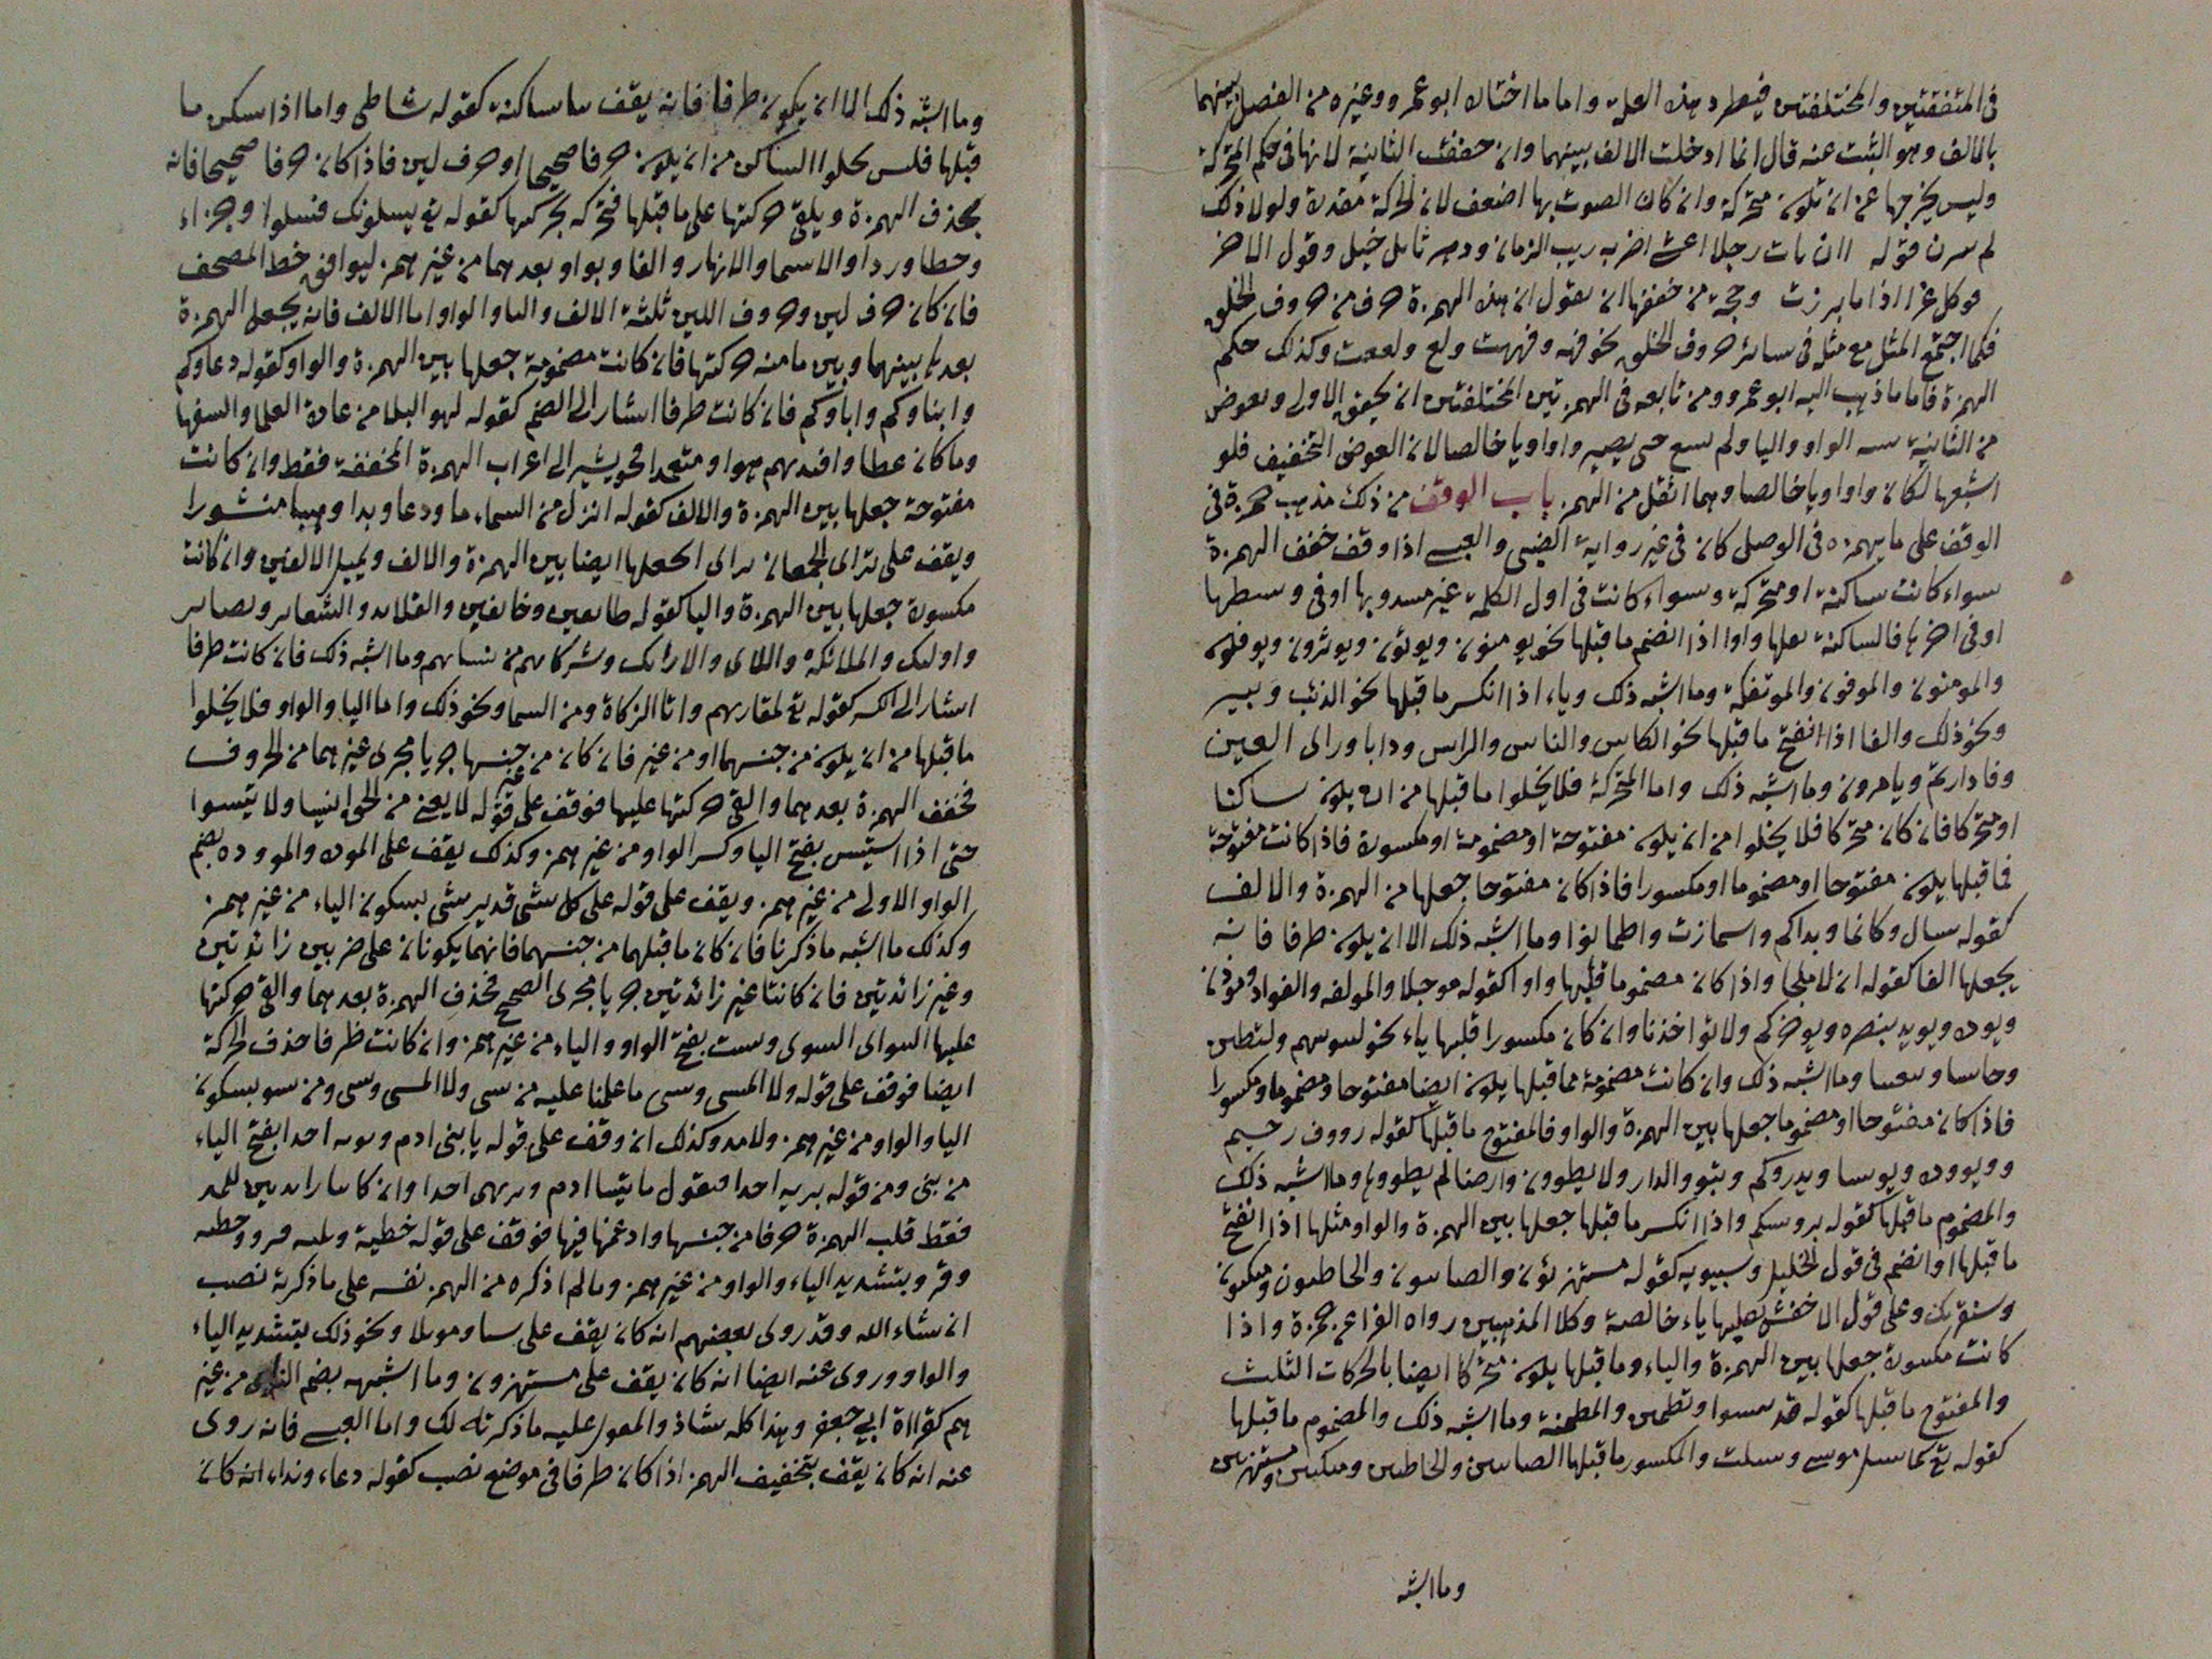 في المتفقتين والمختلفتين فيطرد هذه العلة واما ما اختاره ابو عمرو وغيره من الفصل بينهما
بالالف وهو الثبت عنه قال انما ادخلت الالف بينهما وان خففت الثانية لانها في حكم المتحركة
وليس يخرجها عن ان تكون متحركة وان كان الصوت بها اضعف لان الحركة مقدرة ولولا ذلك
لم قوله اان رات رجلا اعشى اضر به ريب الزمان ودهر خبل وقول الاخر
كل غرا اذا ما برزت وحجة من خففها ان يقول ان هذه الهمزة حرف من حروف الحلق
فكما اجتمع المثل مع مثله في سائر حروف الحلق نحو فه وفههت ولع ولععت وكذلك حكم
الهمزة فاما ما ذهب اليه ابو عمرو ومن تابعه في الهمزتين المختلفتين ان يحقق الاولى ويعوض
من الثانية الواو واليا ولم حتى يصير واوا ويا خالصا لان العوض التخفيف فلو
اشبعها لكان واوا ويا خالصا وهما اثقل من الهمز باب الوقف من ذلك مذهب حمزة في
الوقف على ما يهمزه في الوصل كان في غير رواية الضبي والعبسي اذا وقف خفف الهمزة
سواء كانت ساكنة او متحركة وسواء كانت في اول الكلمة غير او في وسطها
او في اخرها فالساكنة واوا اذا انضم ما قبلها نحو يومنون ويوتون ويوثرون ويوفكون
والمومنون والموفون والموتفكة وما اشبه ذلك وياء اذا انكسر ما قبلها نحو الذئب وبير
ونحو ذلك والفا اذا انفتح ما قبلها نحو الكاس والناس والراس ودابا وراى العين
وفاداراتم ويامرون وما اشبه ذلك واما المتحركة فلا يخلوا ما قبلها من ان يكون ساكنا
او متحركا فان كان متحركا فلا يخلوا من ان يكون مفتوحة او مضمومة او مكسورة فاذا كانت مفتوحة
فما قبلها يكون مفتوحا او مضموما او مكسورا فاذا كان مفتوحا جعلها من الهمزة والالف
كقوله سال وكانما وبداكم واشمازت واطمانوا وما اشبه ذلك الا ان يكون طرفا فانه
يجعلها الفا كقوله ان لا ملجا واذا كان مضموما قلبها واوا كقوله موجلا والمولفه والفواد فموذن
ويوده ويويد بنصره ويوخركم ولا تواخذنا وان كان مكسورا قلبها ياء نحو
وما اشبه ذلك وان كانت مضمومة فما قبلها يكون ايضا مفتوحا ومضموما ومكسورا
فاذا كان مفتوحا او مضموما جعلها بين الهمزة والواو فالمفتوح ما قبلها كقوله رووف رحيم
ويدروكم وتبوو الدار ولا يطوون وارضا لم يطووها وما اشبه ذلك
والمضموم ما قبلها كقوله بروسكم واذا انكسر ما قبلها جعلها بين الهمزة والواو مثلها اذا انفتح
ما قبلها او انضم في قول الخليل وسيبويه كقوله مستهزئون والصابون والخاطون ومتكون
وسنقريك وعلى قول الاخفش ياء خالصة وكلا المذهبين رواه الفراء عن حمزة واذا
كانت مكسورة جعلها بين الهمزة والياء وما قبلها يكون متحركا ايضا بالحركات الثلث
والمفتوح ما قبلها كقوله قد وتطمين والمطمئنة وما اشبه ذلك والمضموم ما قبلها
كقوله تع كما سيل موسى وسيلت والمكسور ما قبلها الصابين والخاطين ومتكين ومستهزين
وما اشبه
وما اشبه ذلك الا ان يكون طرفا فانه يقف ساكنة كقوله شاطى واما اذا سكن ما
قبلها فليس يخلوا الساكن من ان يكون حرفا صحيحا او حرف لين فاذا كان حرفا صحيحا فانه
يحذف الهمزة ويلقى حركتها على ما قبلها فتحركه بحركتها كقوله تع يسلونك فسلوا وجزاء
وخطا وردا والاسما والانهار والفا وبواو بعدهما من غير همز ليوافق خط المصحف
فان كان حرف لين وحروف اللين ثلثة الالف واليا والواو اما الالف فانه يجعل الهمزة
بعدها بينهما وبين ما منه حركتها فان كانت مضمومة جعلها بين الهمزة والواو كقوله دعاوكم
وابناوكم واباوكم فان كانت طرفا اشار الى الضم كقوله لهو البلا من عباده العلما والسفها
وما كان عطا وافدتهم هوا ومتعدا نحو يشير الى اعراب الهمزة المخففة فقط وان كانت
مفتوحة جعلها بين الهمزة والالف كقوله انزل من السماء ما ودعا وبدا وهبا منثورا
ويقف على تراى الجمعان ايضا بين الهمزة والالف ويميل الالفين وان كانت
مكسورة جعلها بين الهمزة واليا كقوله طايعين وخايفين والقلايد والشعاير وبصاير
واوليك والملائكة واللاى والارائك وشركايهم من نسايهم وما اشبه ذلك فان كانت طرفا
اشار الى الكسر كقوله تع لقا ربهم واتا الزكاة ومن السما ونحو ذلك واما اليا والواو فلا يخلوا
ما قبلها من ان يكون من جنسهما او من غير فان كان من غير جنسها جريا مجرى غيرهما من الحروف
فخفف الهمزة بعدهما والقى حركتها عليها فوقف على قوله لا يغني من الحق شيا ولا تيسوا
حتى اذا استيس بفتح اليا وكسر الواو من غير همز وكذلك يقف على الموده والمووده بضم
الواو الاولى من غير همز ويقف على قوله على كل شى قدير شى بسكون الياء من غير همز
وكذلك ما اشبه ما ذكرنا فان كان ما قبلهما من جنسهما فانهما يكونان على ضربين زائدتين
وغير زائدتين فان كانتا غير زائدتين جريا مجرى الصحيح فحذف الهمزة بعدهما والقى حركتها
عليها السواى السوى وسيت بفتح الواو والياء من غير همز وان كانت طرفا حذف الحركة
ايضا فوقف على قوله ولا المسى وسى ما علمنا عليه من سى ولا المسى وسى ومن سو بسكون
اليا والواو من غير همز ولا مد وكذلك ان وقف على قوله يا بني ادم احدا بفتح الياء
من بني ومن قوله بريه احدا فيقول ادم احدا وان كانتا زايدتين للمد
فقط قلب الهمزة حرفا من جنسها وادغمها فيها فوقف على قوله خطية
وقرو بتشديد الياء والواو من غير همز وما لم اذكره من الهمز نفسه على ما ذكرته نصب
ان شاء الله وقد روى بعضهم انه كان يقف على ونحو ذلك بتشديد الياء
والواو وروى عنه ايضا انه كان يقف على مستهزون وما اشبهه بضم من غير
همز كقراة ابي جعفر وهذا كله شاذ والمعول عليه ما ذكرناه لك واما العبسي فانه روى
عنه انه كان يقف بتخفيف الهمز اذا كان طرفا في موضع نصب كقوله دعاء ونداء انه كان